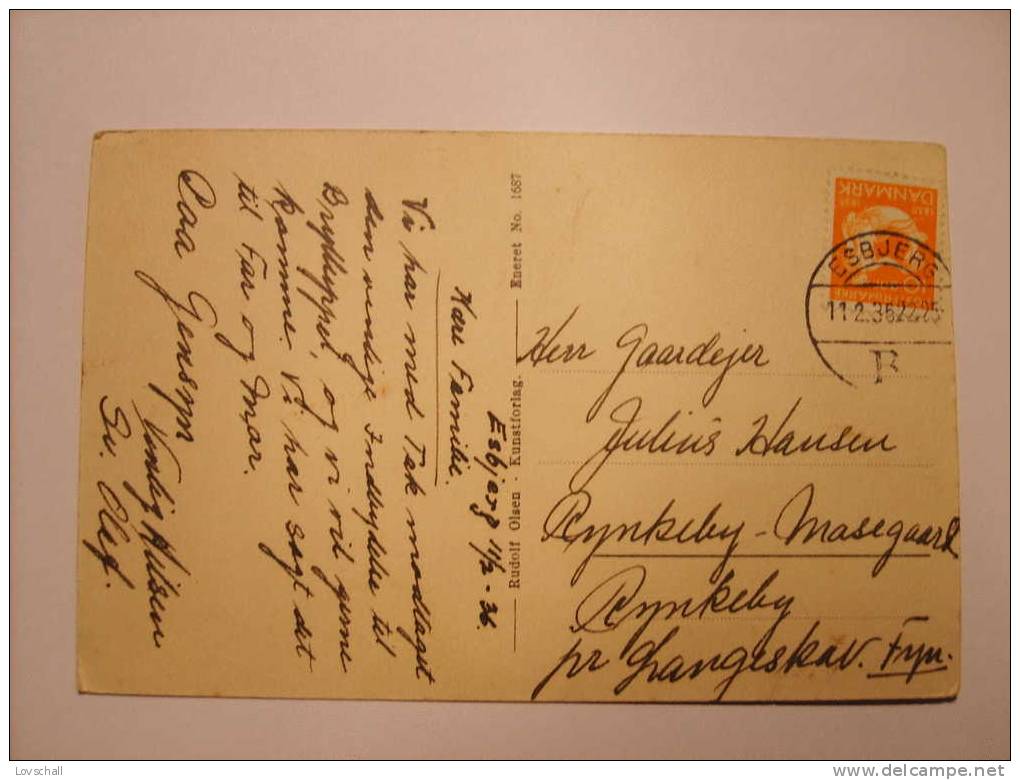 Esbjerg 11/2-36.
Kære Familie.
Vi har med Tak modtaget
den venlige Indbydelse til
Brylluppet, og vi vil gerne
komme. Vi har sagt det
til Far og Mor.
Paa Gensyn
Venlig Hilsen
Sv. Oluf.
Rudolf Olsen - Kunstforlag. Eneret No. 1687
DANMARK
1835 1935
10
ESBJERG
11.2.36 22-25
B
Herr Gaardejer
Julius Hansen
Rynkeby-Mosegaard
Rynkeby
pr Langeskov. Fyn.
Lovschall
www.delcampe.net